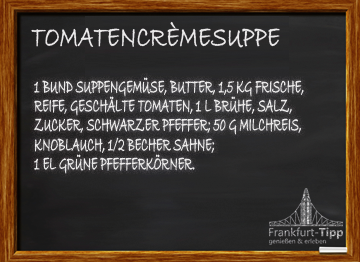 TOMATENCRÈMESUPPE
1 BUND SUPPENGEMÜSE, BUTTER, 1,5 KG FRISCHE,
REIFE, GESCHÄLTE TOMATEN, 1 L BRÜHE, SALZ,
ZUCKER, SCHWARZER PFEFFER; 50 G MILCHREIS,
KNOBLAUCH, 1/2 BECHER SAHNE;
1 EL GRÜNE PFEFFERKÖRNER.
Frankfurt-Tipp
genießen & erleben